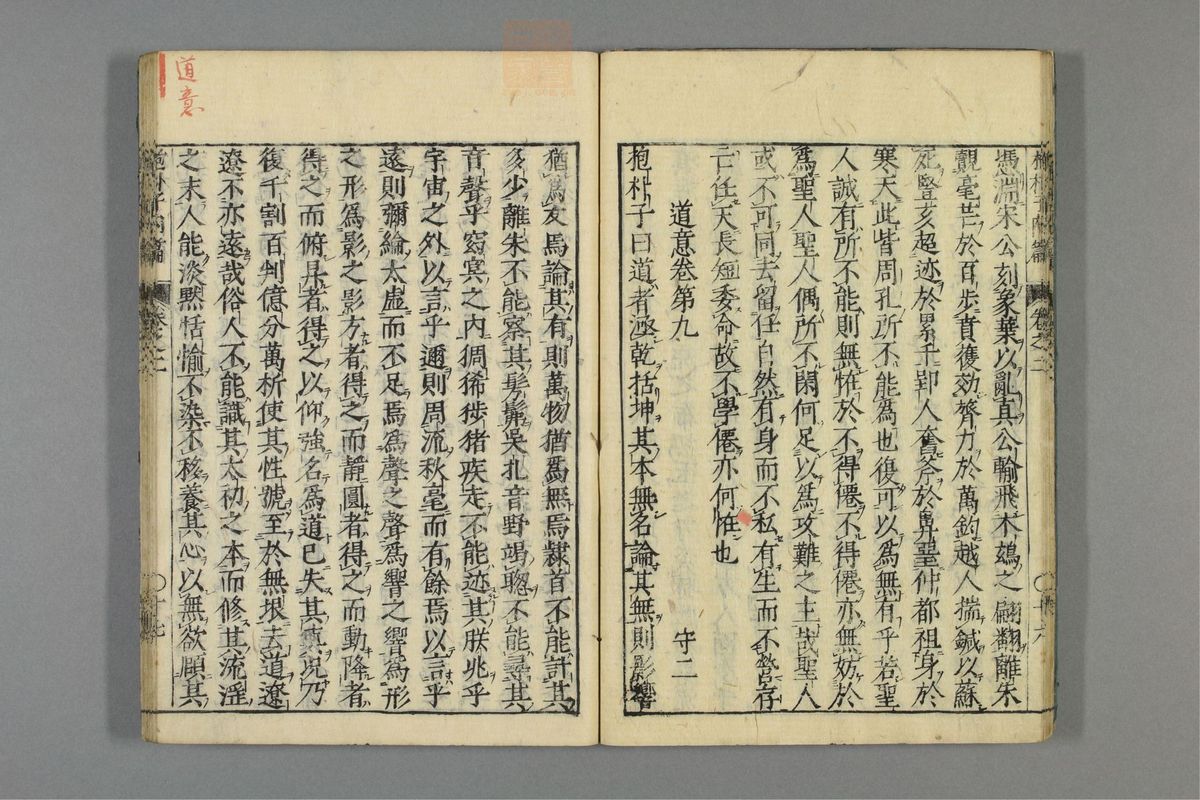 憑淵宋公刻象葉以亂真公輸飛木鴳之翩翾離朱
覿毫芒於百步賁獲効膂力於萬鈞越人揣鍼以蘇
死豎亥超迹於累千郢人奮斧於鼻堊仲都袒身於
寒天此皆周孔所不能為也復可以為無有乎若聖
人誠有所不能則無恠於不得僊不得僊亦無妨於
為聖人聖人偶所不閑何足以為攻難之主哉聖人
或不可同去留任自然有身而不私有生而不營存
亡任天長短委命故不學僊亦何恠也
道意卷第九
守二
抱朴子曰道者涵乾括坤其本無名論其無則影響
猶為有焉論其有則萬物猶為無焉隸首不能計其
多少離朱不能察其髣髴吳札晉野竭聰不能尋其
音聲乎窈冥之內猦狶犙猪疾走不能迹其朕兆乎
宇宙之外以言乎邇則周流秋毫而有餘焉以言乎
遠則彌綸太虛而不足焉為聲之聲為響之響為形
之形為影之影方者得之而靜圓者得之而動降者
得之而俯昇者得之以仰強名為道已失其真況乃
復千割百判億分萬析使其性號至於無垠去道遼
遼不亦遠哉俗人不能識其太初之本而修其流淫
之末人能淡黙恬愉不染不移養其心以無欲頤其
道意